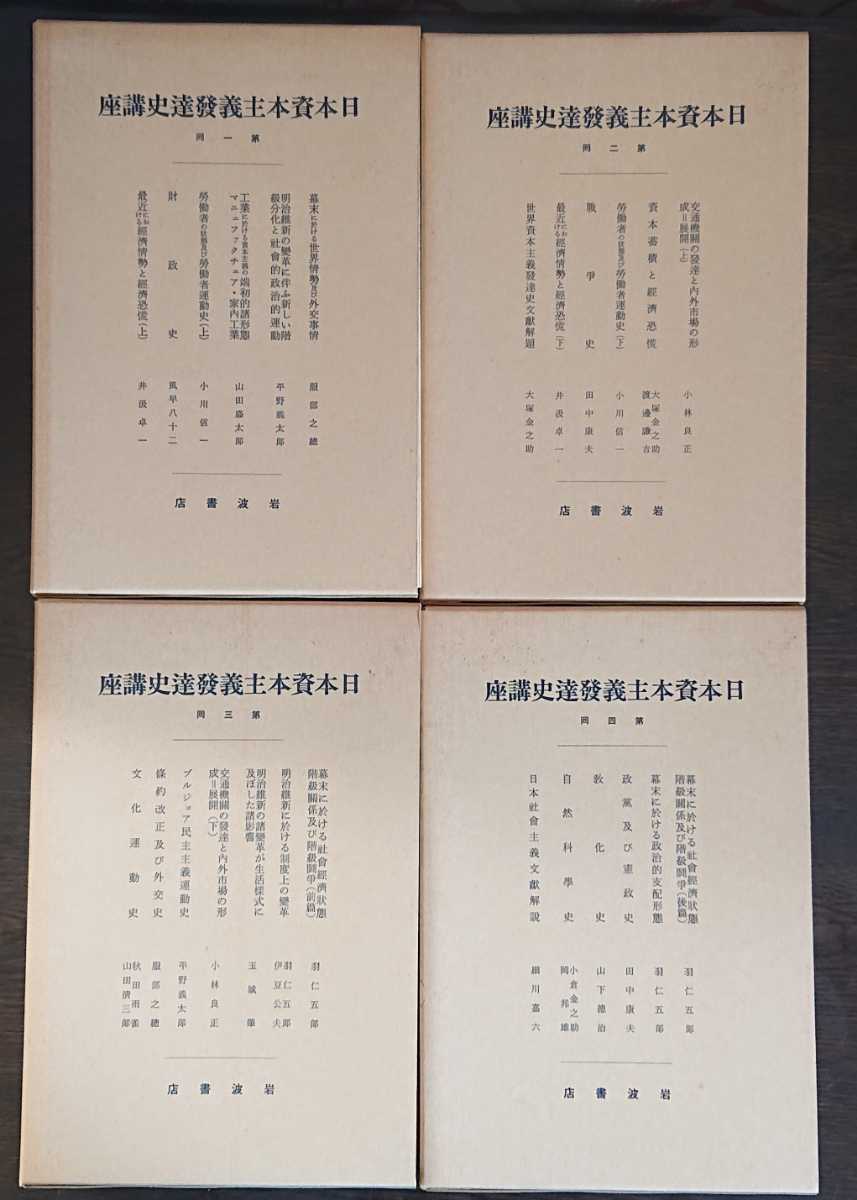 日本資本主義發達史講座
第一囘
幕末に於ける世界情勢及び外交事情
明治維新の變革に伴ふ新しい階
級分化と社會的政治的運動
工業に於ける資本主義の端初的諸形態
マニュファクチュア・家内工業
勞働者の狀態及び勞働者運動史(上)
財政史
最近における經濟情勢と經濟恐慌(上)
服部之總
平野義太郎
山田盛太郎
小川信一
風早八十二
井汲卓一
岩波書店
日本資本主義發達史講座
第二囘
交通機關の發達と内外市場の形
成=展開(上)
資本蓄積と經濟恐慌
勞働者の狀態及び勞働者運動史(下)
戰爭史
最近における經濟情勢と經濟恐慌(下)
世界資本主義發達史文獻解題
小林良正
大塚金之助
渡邊謙吉
小川信一
田中康夫
井汲卓一
大塚金之助
岩波書店
日本資本主義發達史講座
第三囘
幕末に於ける社會經濟狀態
階級關係及び階級鬪爭(前篇)
明治維新に於ける制度上の變革
明治維新の諸變革が生活樣式に
及ぼした諸影響
交通機關の發達と内外市場の形
成=展開(下)
ブルジョア民主主義運動史
條約改正及び外交史
文化運動史
羽仁五郎
羽仁五郎
伊豆公夫
玉城肇
小林良正
平野義太郎
服部之總
秋田雨雀
山田清三郎
岩波書店
日本資本主義發達史講座
第四囘
幕末に於ける社會經濟狀態
階級關係及び階級鬪爭(後篇)
幕末に於ける政治的支配形態
政黨及び憲政史
敎化史
自然科學史
日本社會主義文獻解說
羽仁五郎
羽仁五郎
田中康夫
山下德治
小倉金之助
岡邦雄
細川嘉六
岩波書店